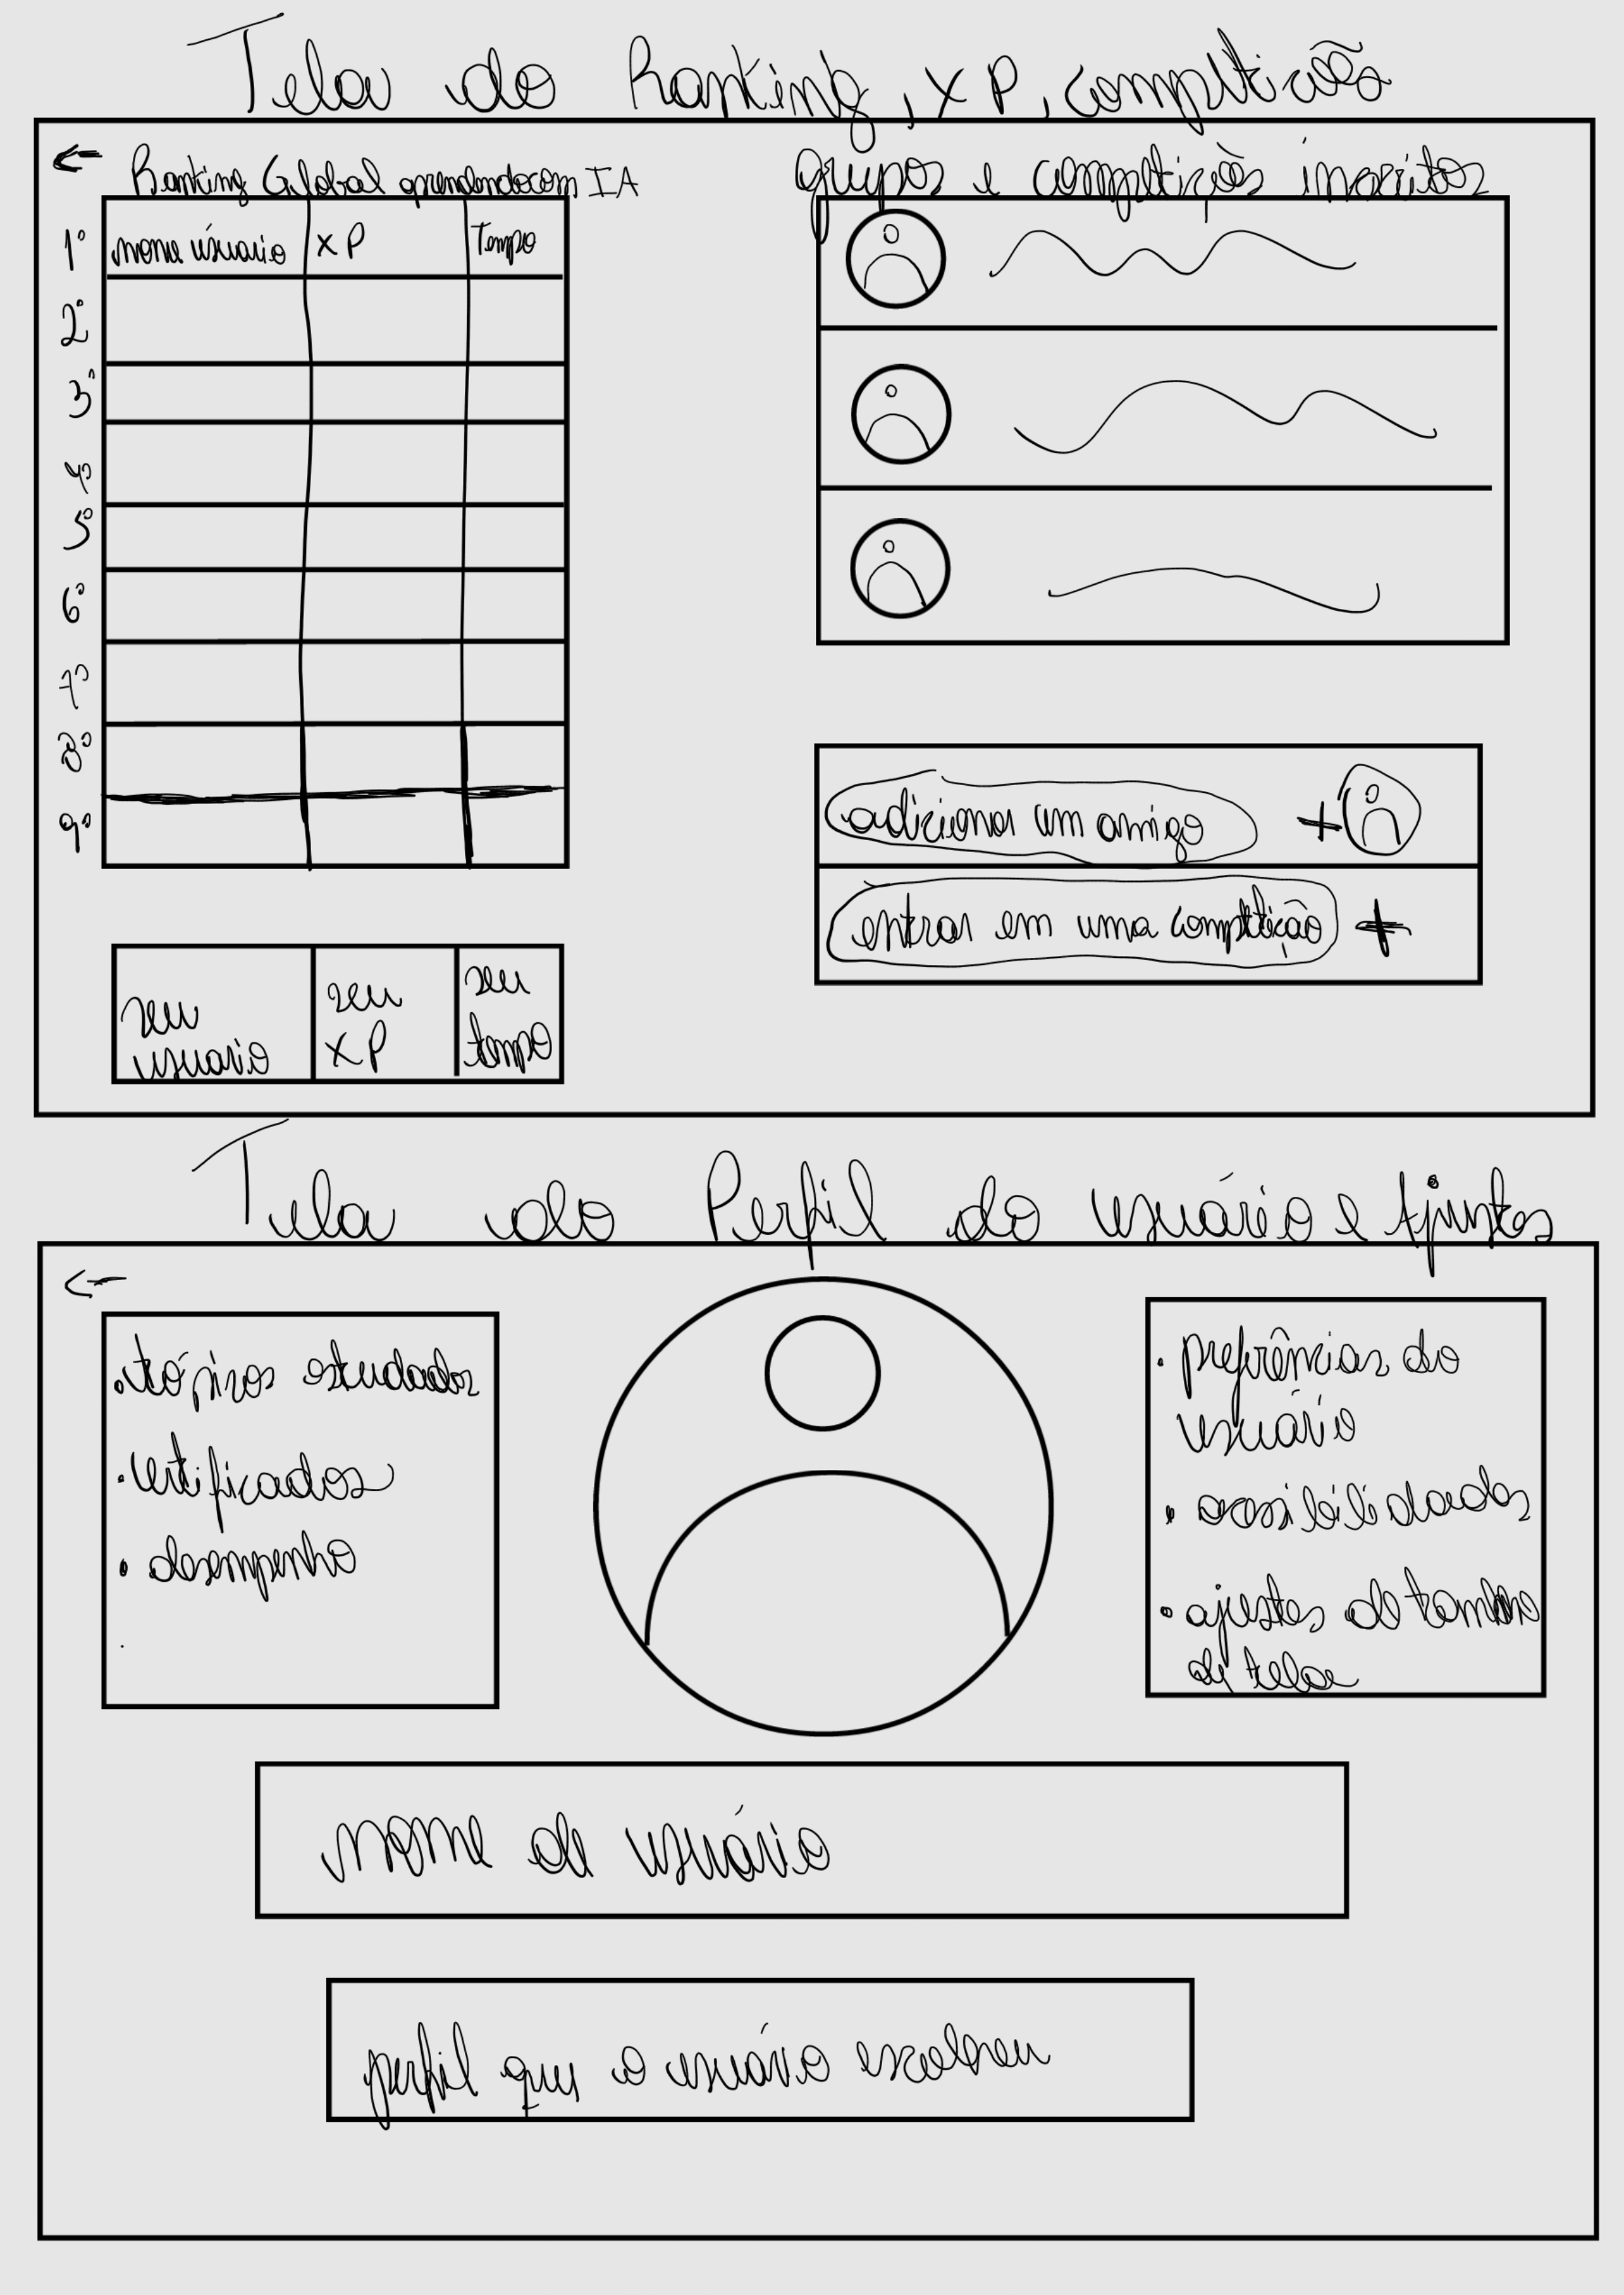 Tela do Ranking, XP, competições
← Ranking Global aprendendocom IA
1° nome usuario XP Tempo
2°
3°
4°
5°
6°
7°
8°
9°
seu usuario
seu XP
seu tempo
grupos e competições inscritos
adicionar um amigo +
entrar em uma competição +
Tela do Perfil do usuário e Ajustes
←
• tópicos estudados
• certificados
• desempenho
•
• preferências do
usuário
• acessibilidades
• ajustes de tamanho
de tela
nome de usuário
perfil que o usuário escolheu